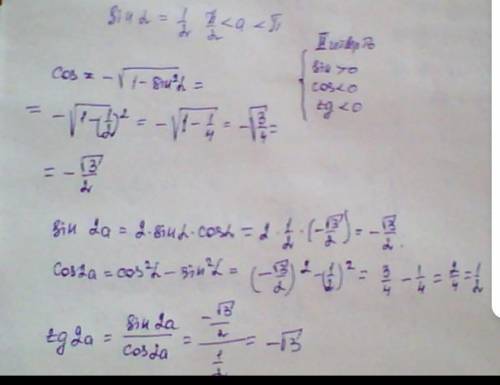 sin α = 1/2 π/2 < a < π
II четверть
sin > 0
cos < 0
tg < 0
cos = -√(1 - sin²α) =
= -√(1 - (1/2)²) = -√(1 - 1/4) = -√(3/4) =
= -√3/2
sin 2a = 2·sinα·cosα = 2·1/2·(-√3/2) = -√3/2.
cos2a = cos²α - sin²α = (-√3/2)² - (1/2)² = 3/4 - 1/4 = 2/4 = 1/2
tg2a = sin2a/cos2a = (-√3/2)/(1/2) = -√3